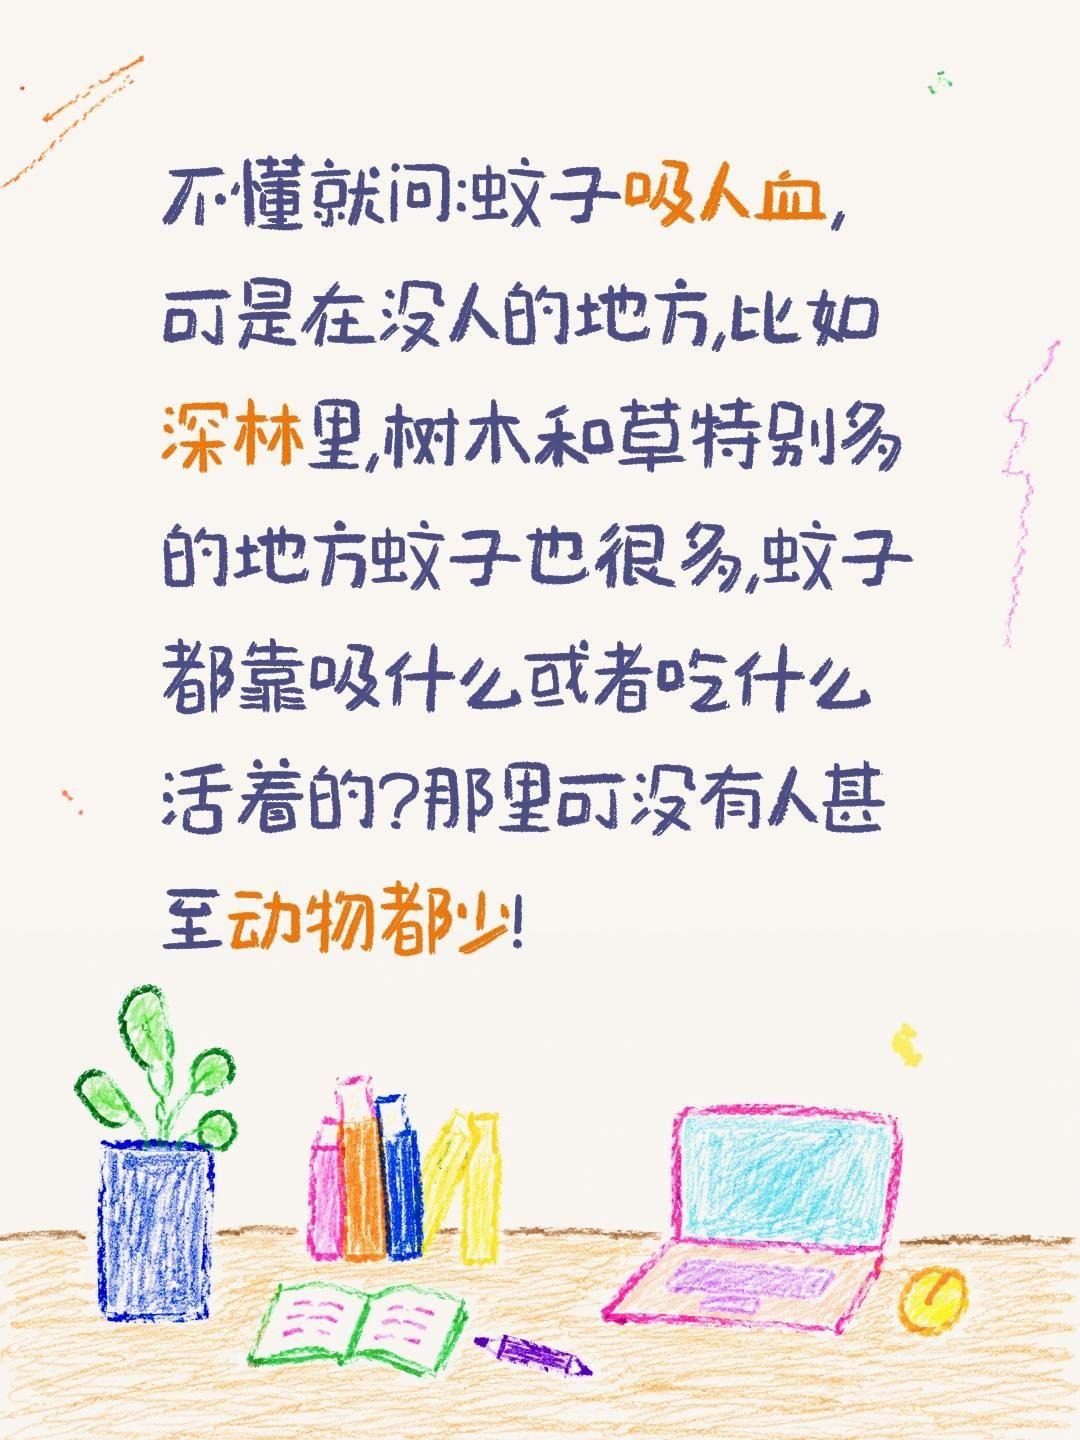 不懂就问:蚊子吸人血,
可是在没人的地方,比如
深林里,树木和草特别多
的地方蚊子也很多,蚊子
都靠吸什么或者吃什么
活着的?那里可没有人甚
至动物都少!